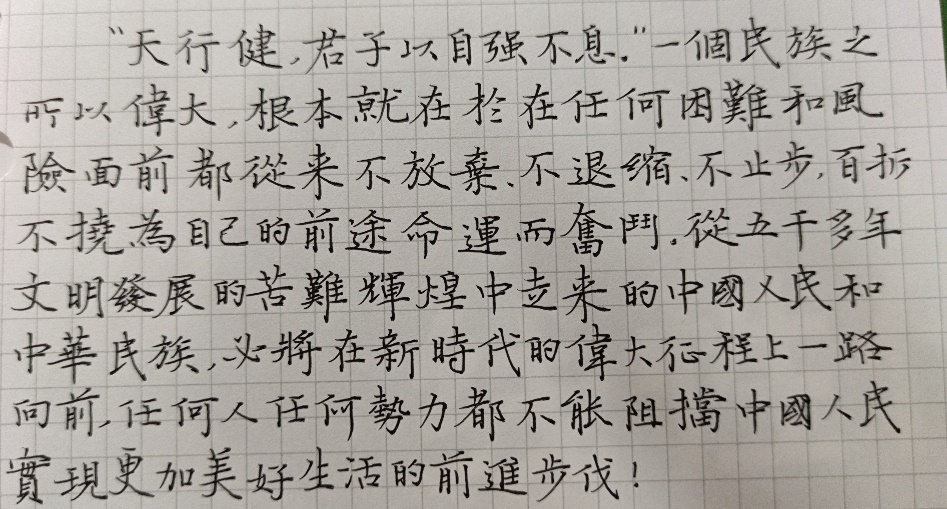 “天行健,君子以自强不息.”一個民族之
所以偉大,根本就在於在任何困難和風
險面前都從来不放棄、不退缩、不止步,百折
不撓為自己的前途命運而奮鬥.從五千多年
文明發展的苦難輝煌中走来的中國人民和
中華民族,必將在新時代的偉大征程上一路
向前,任何人任何勢力都不能阻擋中國人民
實現更加美好生活的前進步伐!